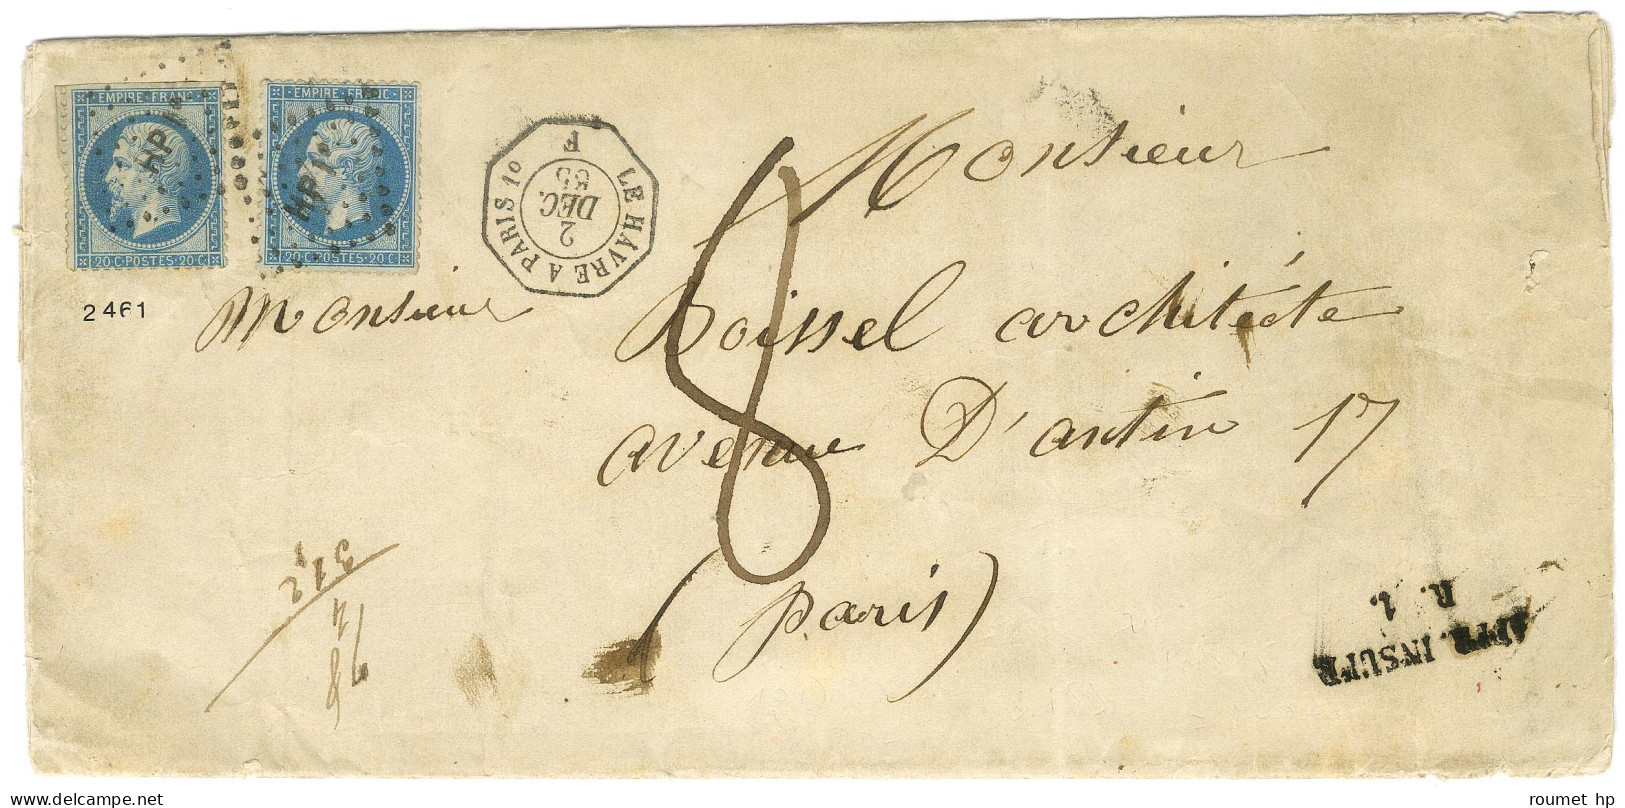 EMPIRE · FRANC
HP 1°
20 · C · POSTES · 20 · C
EMPIRE · FRANC
HP 1°
20 · C · POSTES · 20 · C
LE HAVRE A PARIS 1°
F
2
DEC.
65
2461
8
Monsieur
Monsieur Boissel architécte
avenue D'antin 17
(paris)
AFFR. INSUFF.
R. 1.
1 4
312
roumet hp